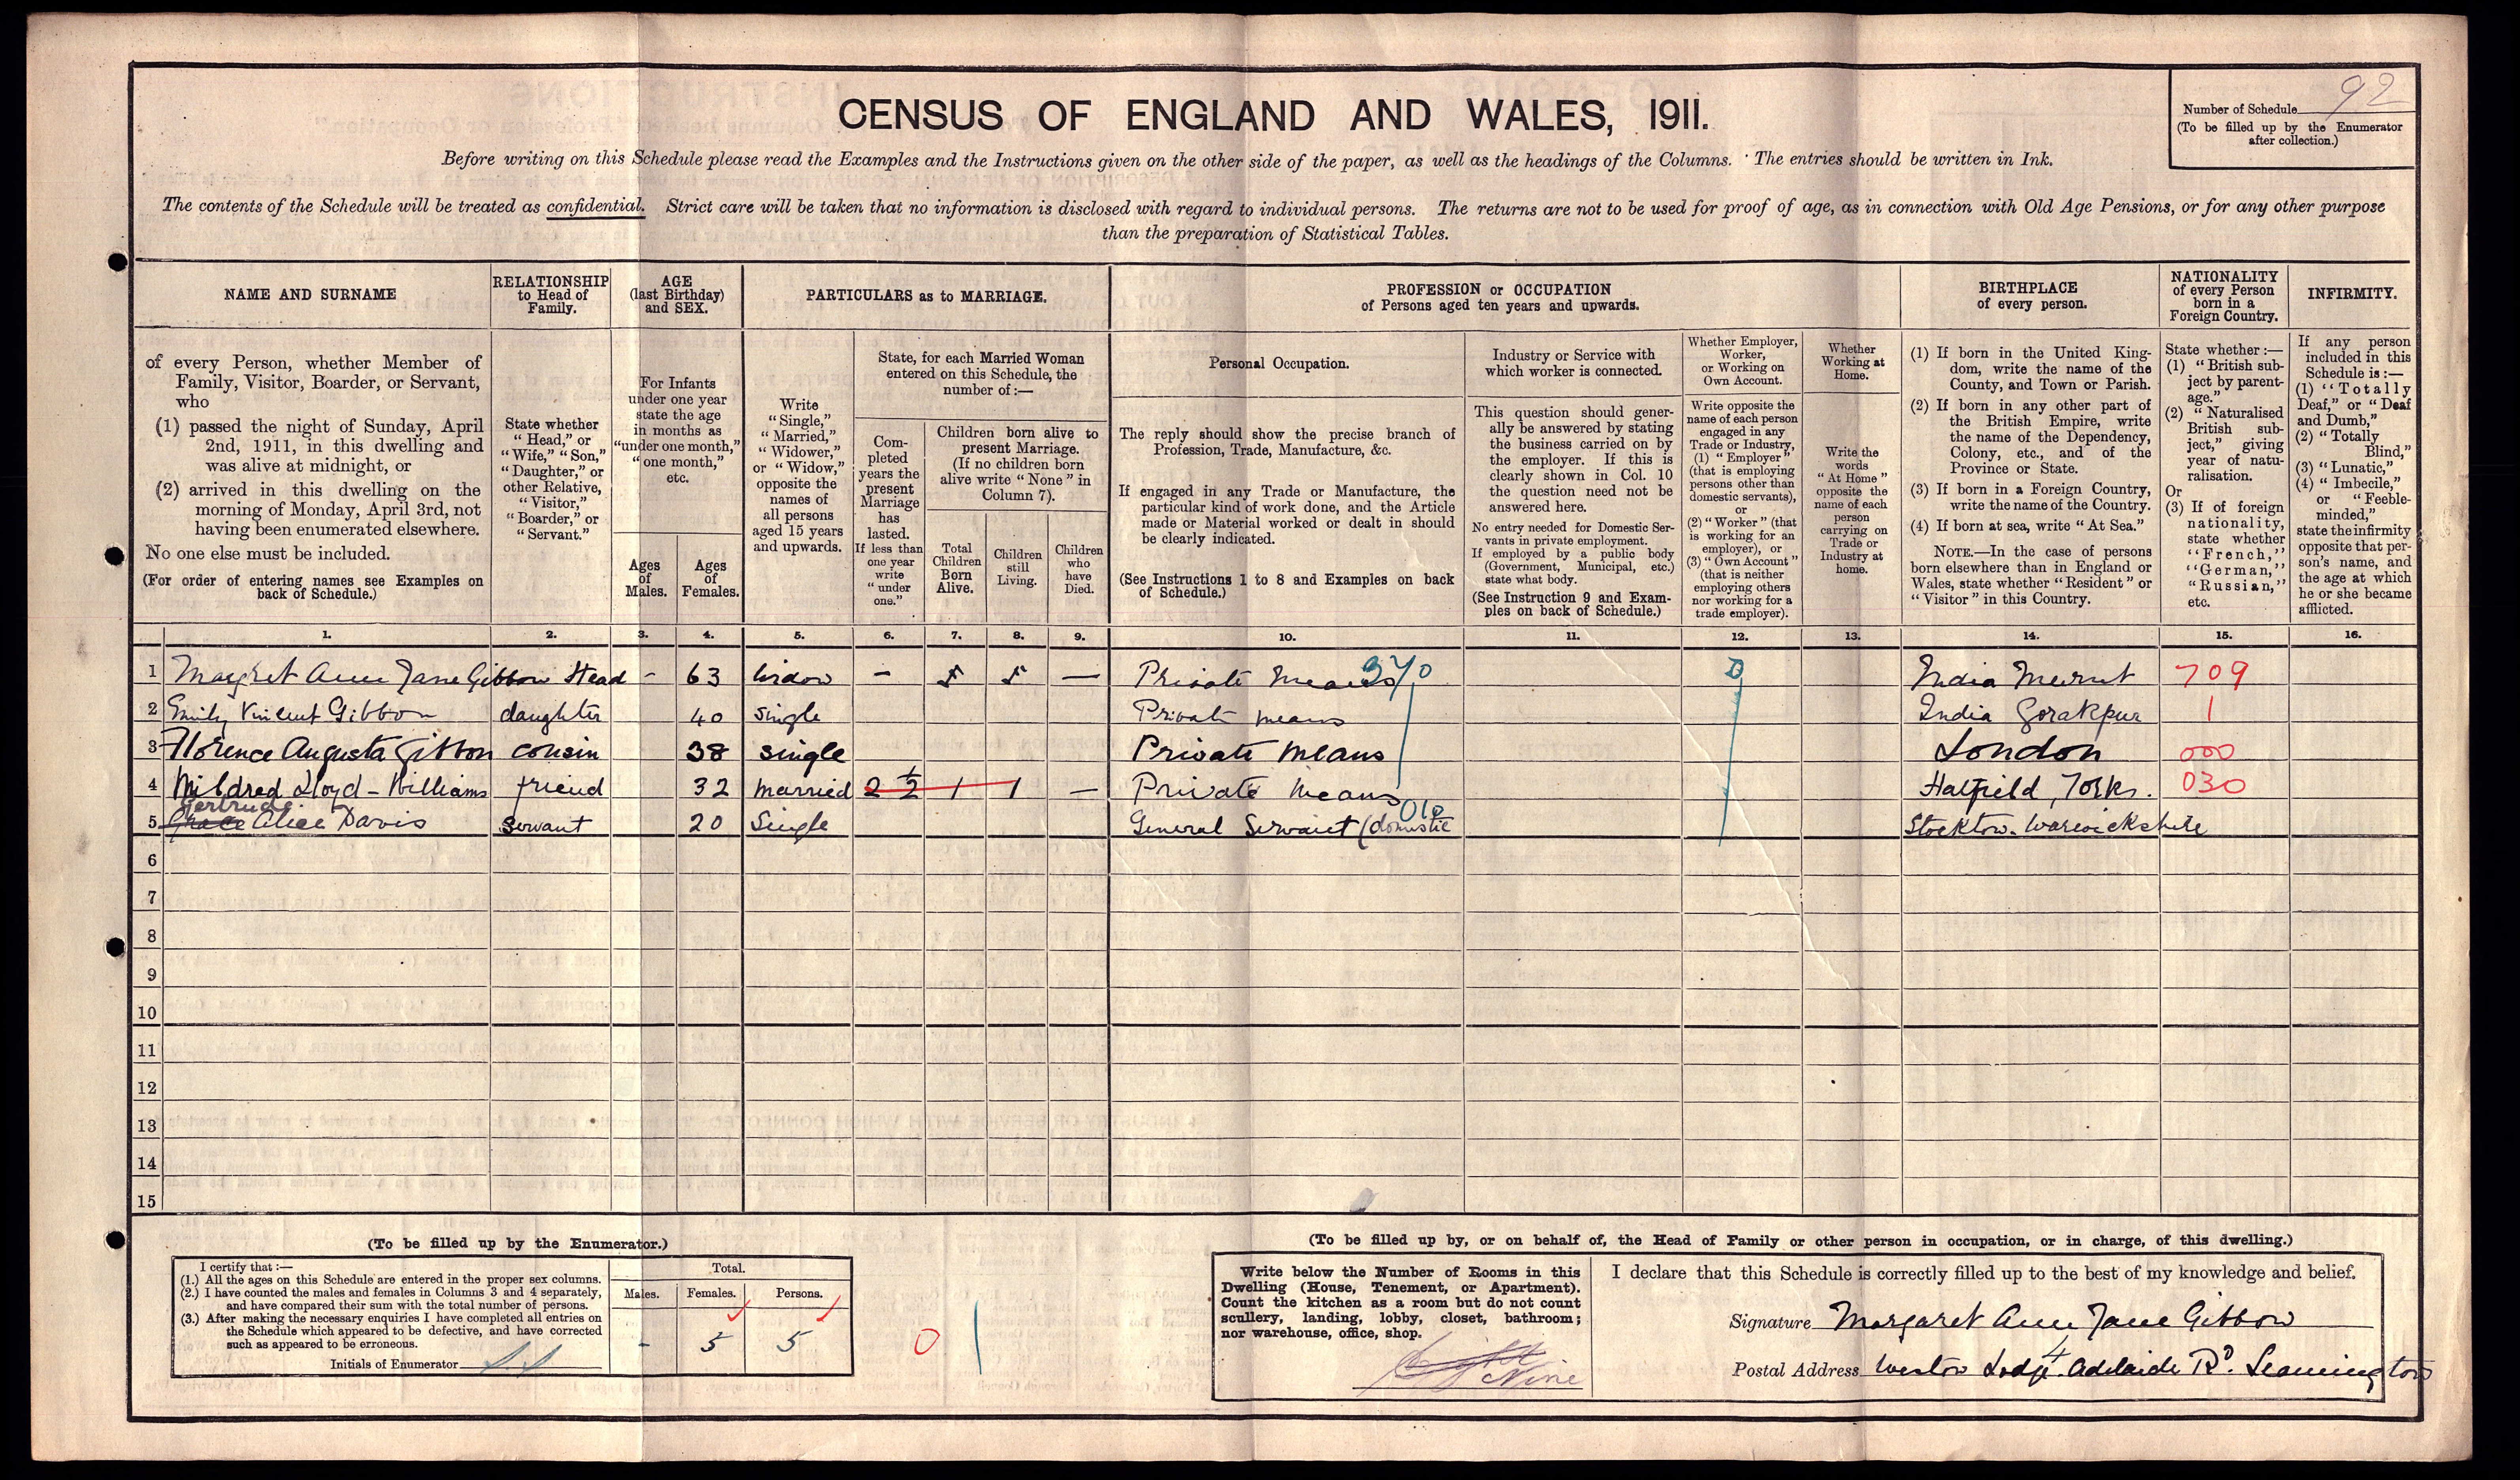 CENSUS OF ENGLAND AND WALES, 1911.
Number of Schedule 92
(To be filled up by the Enumerator
after collection.)
Before writing on this Schedule please read the Examples and the Instructions given on the other side of the paper, as well as the headings of the Columns. The entries should be written in Ink.
The contents of the Schedule will be treated as confidential. Strict care will be taken that no information is disclosed with regard to individual persons. The returns are not to be used for proof of age, as in connection with Old Age Pensions, or for any other purpose
than the preparation of Statistical Tables.
NAME AND SURNAME
of every Person, whether Member of
Family, Visitor, Boarder, or Servant,
who
(1) passed the night of Sunday, April
2nd, 1911, in this dwelling and
was alive at midnight, or
(2) arrived in this dwelling on the
morning of Monday, April 3rd, not
having been enumerated elsewhere.
No one else must be included.
(For order of entering names see Examples on
back of Schedule.)
RELATIONSHIP
to Head of
Family.
State whether
"Head," or
"Wife," "Son,"
"Daughter," or
other Relative,
"Visitor,"
"Boarder," or
"Servant."
AGE
(last Birthday)
and SEX.
For Infants
under one year
state the age
in months as
"under one month,"
"one month,"
etc.
Ages
of
Males.
Ages
of
Females.
PARTICULARS as to MARRIAGE.
Write
"Single,"
"Married,"
"Widower,"
or "Widow,"
opposite the
names of
all persons
aged 15 years
and upwards.
State, for each Married Woman
entered on this Schedule, the
number of:—
Com-
pleted
years the
present
Marriage
has
lasted.
If less than
one year
write
"under
one."
Children born alive to
present Marriage.
(If no children born
alive write "None" in
Column 7).
Total
Children
Born
Alive.
Children
still
Living.
Children
who
have
Died.
PROFESSION or OCCUPATION
of Persons aged ten years and upwards.
Personal Occupation.
The reply should show the precise branch of
Profession, Trade, Manufacture, &c.
If engaged in any Trade or Manufacture, the
particular kind of work done, and the Article
made or Material worked or dealt in should
be clearly indicated.
(See Instructions 1 to 8 and Examples on back
of Schedule.)
Industry or Service with
which worker is connected.
This question should gener-
ally be answered by stating
the business carried on by
the employer. If this is
clearly shown in Col. 10
the question need not be
answered here.
No entry needed for Domestic Ser-
vants in private employment.
If employed by a public body
(Government, Municipal, etc.)
state what body.
(See Instruction 9 and Exam-
ples on back of Schedule.)
Whether Employer,
Worker,
or Working on
Own Account.
Write opposite the
name of each person
engaged in any
Trade or Industry,
(1) "Employer"
(that is employing
persons other than
domestic servants),
or
(2) "Worker" (that
is working for an
employer), or
(3) "Own Account"
(that is neither
employing others
nor working for a
trade employer).
Whether
Working at
Home.
Write the
words
"At Home"
opposite the
name of each
person
carrying on
Trade or
Industry at
home.
BIRTHPLACE
of every person.
(1) If born in the United King-
dom, write the name of the
County, and Town or Parish.
(2) If born in any other part of
the British Empire, write
the name of the Dependency,
Colony, etc., and of the
Province or State.
(3) If born in a Foreign Country,
write the name of the Country.
(4) If born at sea, write "At Sea."
NOTE.—In the case of persons
born elsewhere than in England or
Wales, state whether "Resident" or
"Visitor" in this Country.
NATIONALITY
of every Person
born in a
Foreign Country.
State whether:—
(1) "British sub-
ject by parent-
age."
(2) "Naturalised
British sub-
ject," giving
year of natu-
ralisation.
Or
(3) If of foreign
nationality,
state whether
"French,"
"German,"
"Russian,"
etc.
INFIRMITY.
If any person
included in this
Schedule is:—
(1) "Totally
Deaf," or "Deaf
and Dumb,"
(2) "Totally
Blind,"
(3) "Lunatic,"
(4) "Imbecile,"
or "Feeble-
minded,"
state the infirmity
opposite that per-
son's name, and
the age at which
he or she became
afflicted.
1. 2. 3. 4. 5. 6. 7. 8. 9. 10. 11. 12. 13. 14. 15. 16.
1 Margret Ann Jane Gibbon Head - 63 Widow - 5 5 — Private Means 370 India Meerut 709
2 Emily Vincent Gibbon daughter 40 Single Private means India Gorakpur 1
3 Florence Augusta Gibbon cousin 38 single Private Means London 000
4 Mildred Lloyd-Williams friend 32 married 2 1/2 1 1 — Private Means Hatfield, Yorks. 030
Gertrude
5 Grace Alice Davis Servant 20 Single General Servant (domestic 010 Stockton. Warwickshire
6
7
8
9
10
11
12
13
14
15
(To be filled up by the Enumerator.)
I certify that:—
(1.) All the ages on this Schedule are entered in the proper sex columns.
(2.) I have counted the males and females in Columns 3 and 4 separately,
and have compared their sum with the total number of persons.
(3.) After making the necessary enquiries I have completed all entries on
the Schedule which appeared to be defective, and have corrected
such as appeared to be erroneous.
Initials of Enumerator
Total.
Males. Females. Persons.
- 5 5
0
(To be filled up by, or on behalf of, the Head of Family or other person in occupation, or in charge, of this dwelling.)
Write below the Number of Rooms in this
Dwelling (House, Tenement, or Apartment).
Count the kitchen as a room but do not count
scullery, landing, lobby, closet, bathroom;
nor warehouse, office, shop.
Eight
Nine
I declare that this Schedule is correctly filled up to the best of my knowledge and belief.
Signature Margaret Ann Jane Gibbon
Postal Address Weston Lodge 4 Adelaide Rd. Leamington